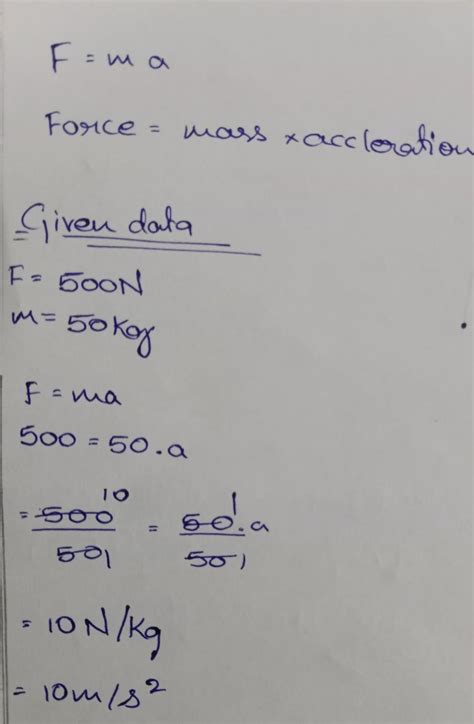 F = m a
Force = mass × accleration
Given data
F = 500N
m = 50Kg
F = ma
500 = 50.a
= 500/50 10 1 = 50.a/50 1 1
= 10N/Kg
= 10m/s²